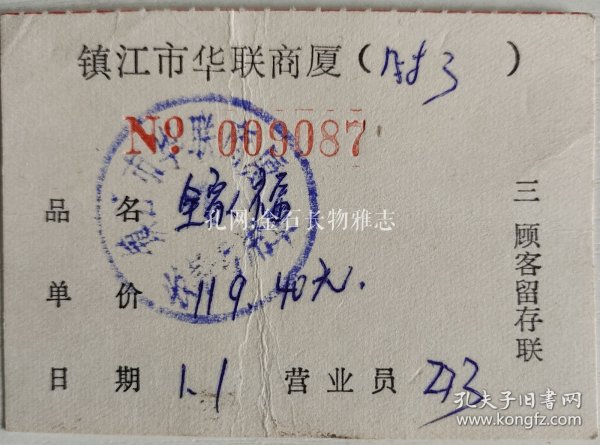 镇江市华联商厦（财3）
No. 009087
品名
孔网:金石长物雅志
单价 119.40元.
日期 1.1 营业员 213
三 顾客留存联
孔夫子旧书网
www.kongfz.com